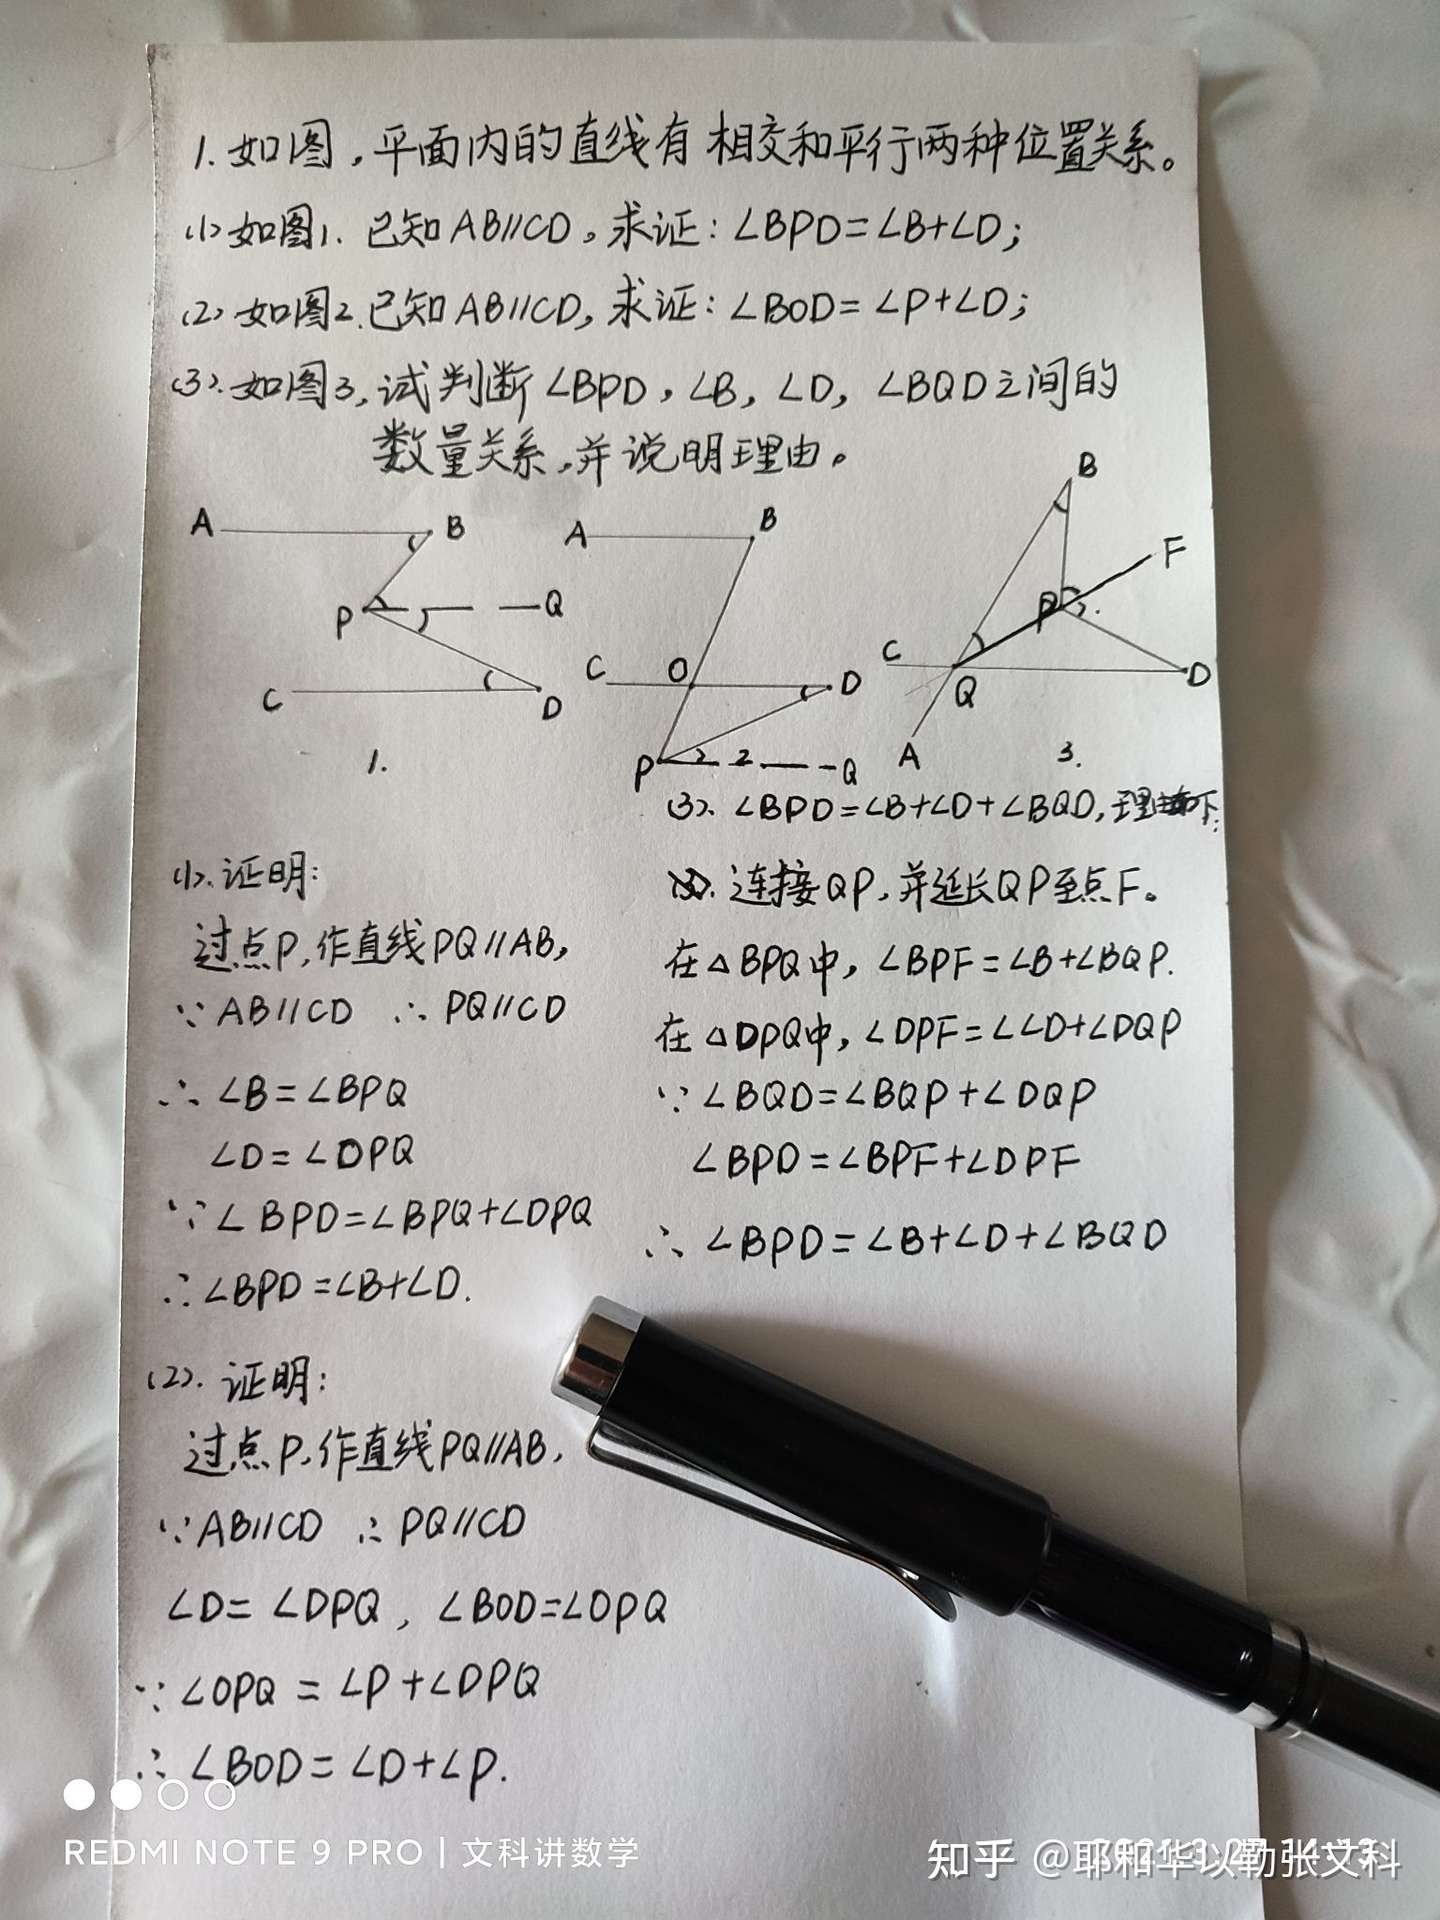 1. 如图，平面内的直线有相交和平行两种位置关系。
(1) 如图1. 已知AB//CD，求证：∠BPD=∠B+∠D；
(2) 如图2. 已知AB//CD, 求证：∠BOD=∠P+∠D；
(3). 如图3, 试判断∠BPD，∠B，∠D，∠BQD之间的
数量关系，并说明理由。
A B P Q C D
1.
A B C O D P Q
2
B F P C Q D A
3.
(1). 证明：
过点P, 作直线PQ//AB,
∵AB//CD ∴PQ//CD
∴∠B=∠BPQ
∠D=∠DPQ
∵∠BPD=∠BPQ+∠DPQ
∴∠BPD=∠B+∠D.
(2). 证明：
过点P, 作直线PQ//AB,
∵AB//CD ∴PQ//CD
∠D=∠DPQ，∠BOD=∠OPQ
∵∠OPQ=∠P+∠DPQ
∴∠BOD=∠D+∠P.
(3). ∠BPD=∠B+∠D+∠BQD, 理由如下：
连接QP, 并延长QP至点F。
在△BPQ中，∠BPF=∠B+∠BQP.
在△DPQ中，∠DPF=∠∠D+∠DQP
∵∠BQD=∠BQP+∠DQP
∠BPD=∠BPF+∠DPF
∴∠BPD=∠B+∠D+∠BQD
REDMI NOTE 9 PRO | 文科讲数学
知乎 @耶和华以勒张文科